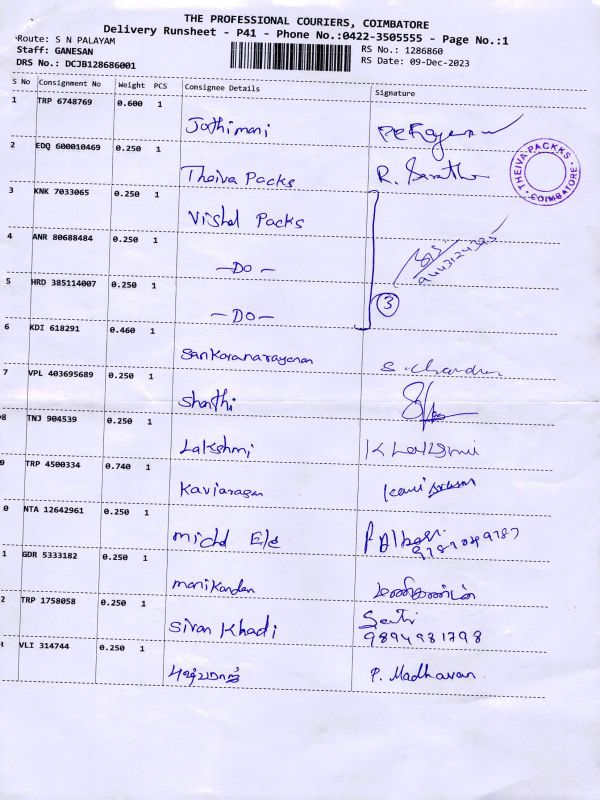 THE PROFESSIONAL COURIERS, COIMBATORE
Delivery Runsheet - P41 - Phone No.:0422-3505555 - Page No.:1
Route: S N PALAYAM
Staff: GANESAN
DRS No.: DCJB128686001
RS No.: 1286860
RS Date: 09-Dec-2023
S No Consignment No Weight PCS Consignee Details Signature
1 TRP 6748769 0.600 1
Jothimani
2 EDQ 600010469 0.250 1
Theiva Packs R.
THEIVA PACKKS COIMBATORE
3 KNK 7033065 0.250 1
Vishal Packs
4 ANR 80688484 0.250 1
-DO-
5 HRD 385114007 0.250 1
-DO- 3
6 KDI 618291 0.460 1
Sankaranarayanan S.
7 VPL 403695689 0.250 1
Shanthi
8 TNJ 904539 0.250 1
Lakshmi K Lakshmi
9 TRP 4500334 0.740 1
Kaviarasan
0 NTA 12642961 0.250 1
1 GDR 5333182 0.250 1
Manikandan மணிகண்டன்
2 TRP 1758058 0.250 1
Sivan Khadi
9894981798
3 VLI 314744 0.250 1
P. Madhavan